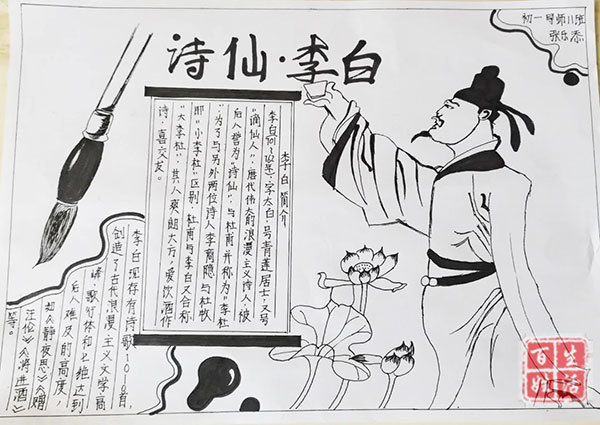 诗仙·李白
张乐添
李白简介
李白,字太白,号青莲居士,又号
“谪仙人”,唐代伟大的浪漫主义诗人,被
后人誉为“诗仙”,与杜甫并称为“李杜
”为了与另外两位诗人李商隐与杜牧
即“小李杜”区别,杜甫与李白又合称
“大李杜”,其人爽朗大方,爱饮酒作
诗,喜交友。
李白现存有诗歌1010首,
创造了古代浪漫主义文学高
峰,歌行体和七绝达到
后人难及的高度,
如《静夜思》《赠
汪伦》《将进酒》
等。
百姓生活